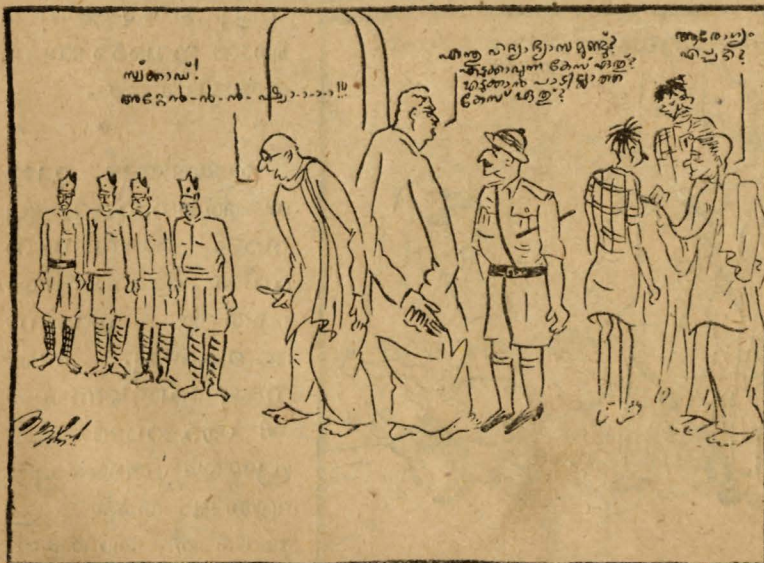 സ്ക്വാഡ്!
അറ്റേൻ-ൻ-ൻ-ഷ്യാ-ാ-ാ-ാ!!!
എന്തു വിദ്യാഭ്യാസമുണ്ട്?
എടുക്കാവുന്ന കേസ് ഏത്?
എടുക്കാൻ പാടില്ലാത്ത
കേസ് ഏത്?
ആരോഗ്യം
എപ്പടി?